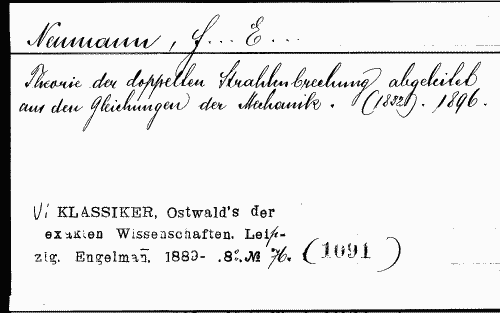 Neumann, F... E...
Theorie der doppelten Strahlenbrechung abgeleitet
aus den Gleichungen der Mechanik. (1832). 1896.
Vi KLASSIKER, Ostwald's der
exakten Wissenschaften. Leip-
zig. Engelmañ. 1889- .8º. № 76. (1691)